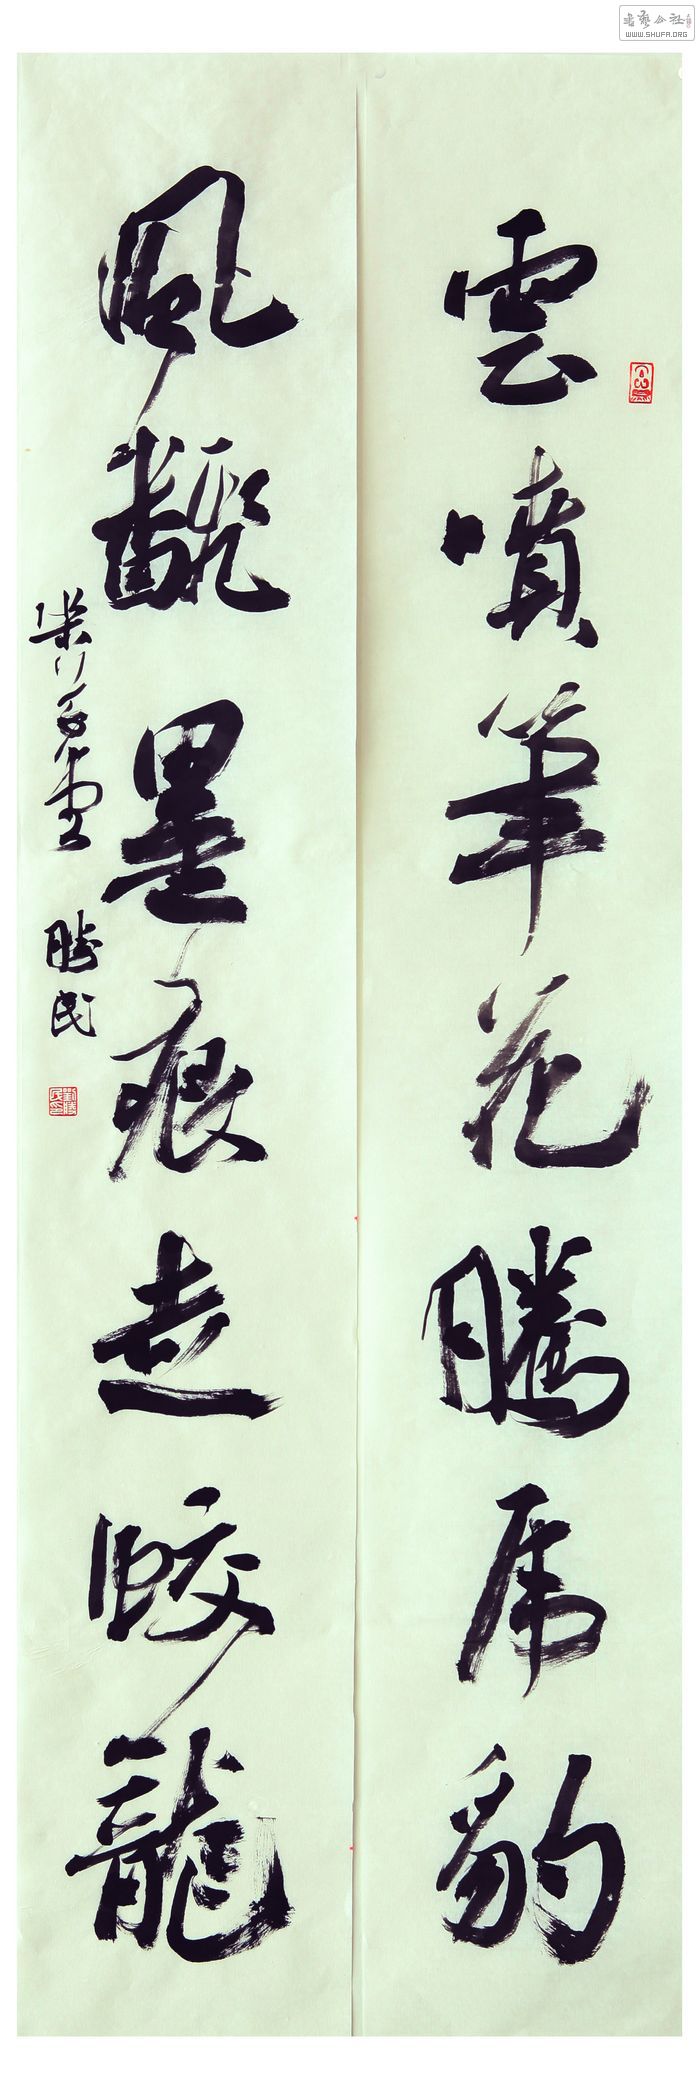 書藝公社
WWW.SHUFA.ORG
雲噴筆花騰虎豹
風飜墨痕走蛟龍
勝民